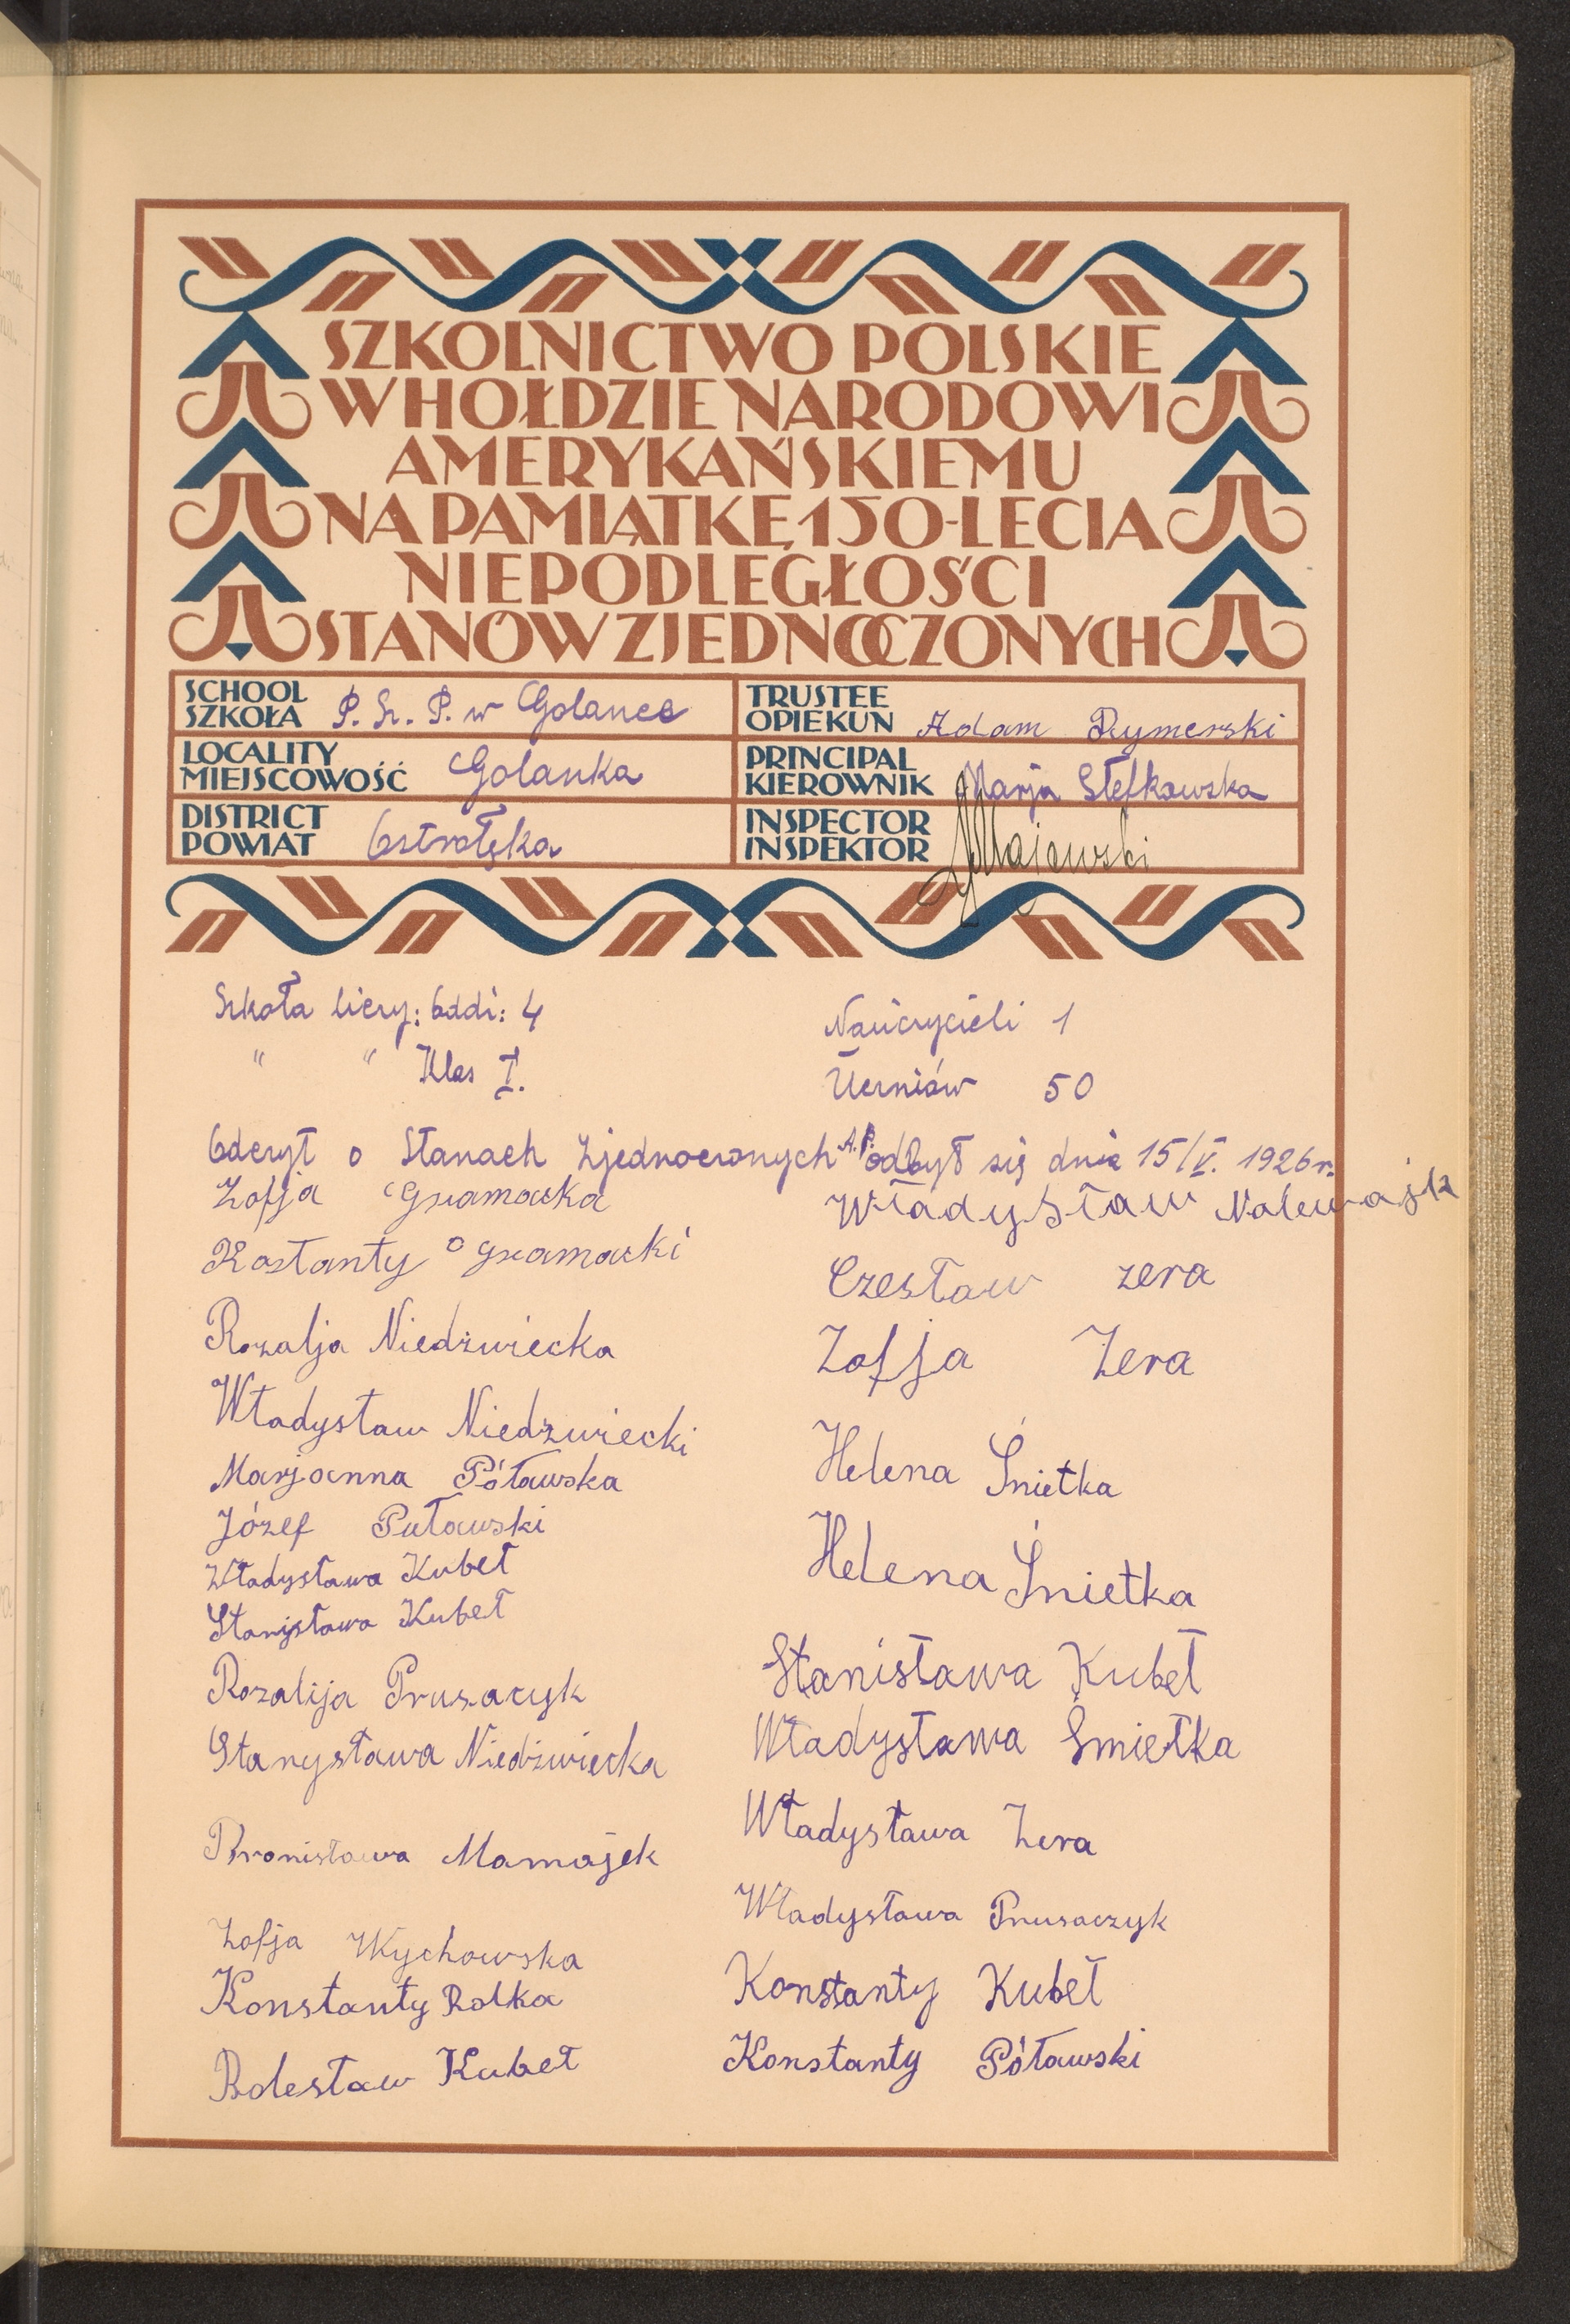 SZKOLNICTWO POLSKIE
W HOŁDZIE NARODOWI
AMERYKAŃSKIEMU
NA PAMIĄTKĘ 150-LECIA
NIEPODLEGŁOŚCI
STANÓW ZJEDNOCZONYCH
SCHOOL
SZKOŁA P. Sz. P. w Golance
TRUSTEE
OPIEKUN Adam Rymerski
LOCALITY
MIEJSCOWOŚĆ Golanka
PRINCIPAL
KIEROWNIK Marja Stefkowska
DISTRICT
POWIAT Ostrołęka
INSPECTOR
INSPEKTOR Majewski
Szkoła liczy: Oddz: 4
" " Klas I.
Nauczycieli 1
Uczniów 50
Odczyt o Stanach Zjednoczonych A.P. odbył się dnia 15/V. 1926 r.
Zofja Gramacka
Kostanty Gramacki
Rozalja Niedzwiecka
Władysław Niedzwiecki
Marjanna Póławska
Józef Puławski
Władysława Kubeł
Stanisława Kubeł
Rozalija Prusaczyk
Stanysława Niedźwiecka
Bronisława Mamajek
Zofja Wychowska
Konstanty Rolka
Bolesław Kubeł
Władysław Nalewajk
Czesław zera
Zofja Zera
Helena Śniełka
Helena Śniełka
Stanisława Kubeł
Władysława Śmiełka
Władysława Zera
Władysława Prusaczyk
Konstanty Kubeł
Konstanty Póławski